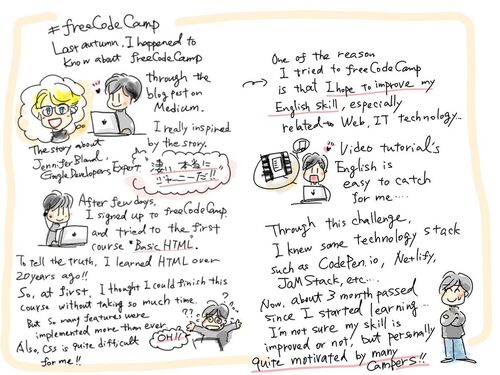 #freeCodeCamp
Last autumn, I happened to
know about freeCodeCamp
through the
blog post on
Medium.
I really inspired
by the story.
The story about
Jennifer Bland,
Google Developers Expert.
凄い 本当に
ジャーニーだ!!
After few days,
I signed up to freeCodeCamp,
and tried to the first
course "Basic HTML."
To tell the truth, I learned HTML over
20 years ago!!
So, at first, I thought I could finish this
course without taking so much time.
But so many features were
implemented more than ever.
Also, CSS is quite difficult
for me!!
??
??
OH!!
One of the reason
I tried to freeCodeCamp
is that I hope to improve my
English skill, especially
related to Web, IT technology...
Video tutorial's
English is
easy to catch
for me....
Through this challenge,
I knew some technology stack
such as CodePen.io, Netlify,
JAMStack, etc...
Now, about 3 month passed
since I started learning...
I'm not sure my skill is
improved or not, but personally
quite motivated by many
Campers!!